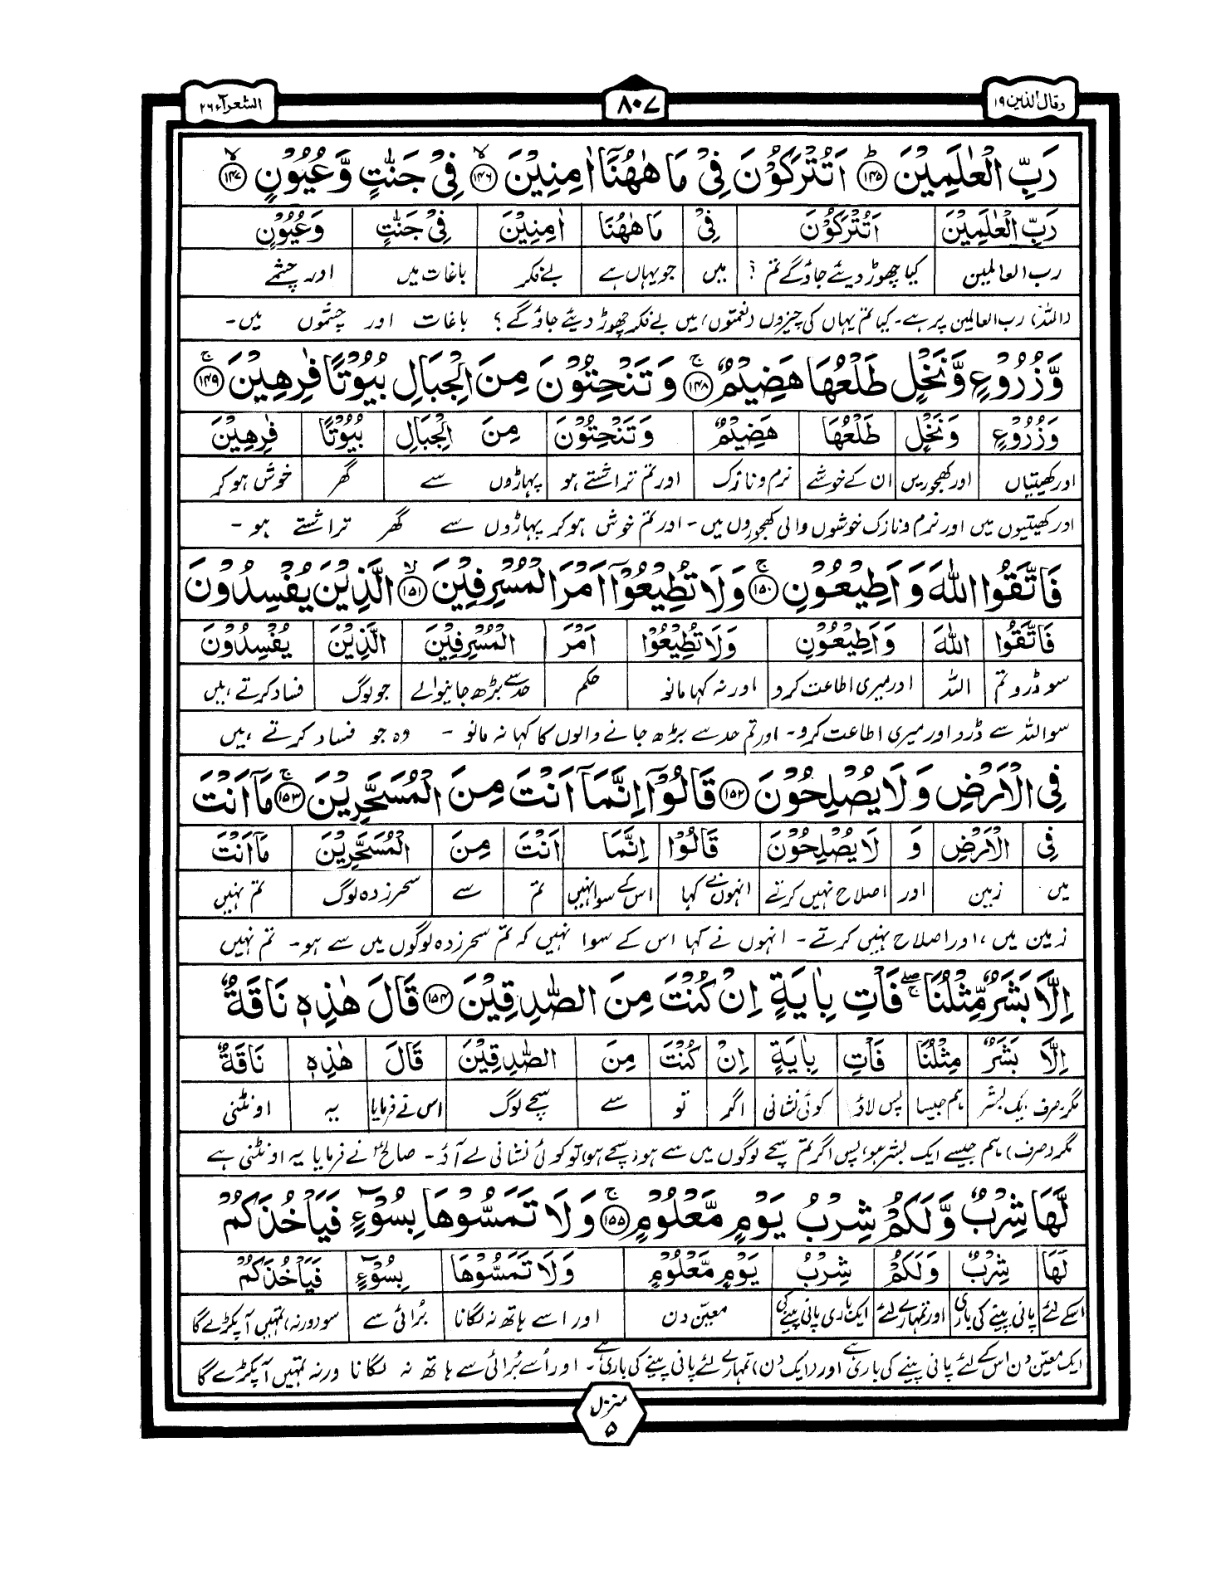 وقال الذین ۱۹
۸۰۷
الشعرآء ۲۶
رَبِّ الْعٰلَمِیْنَ ﴿۱۴۵﴾ؕ اَتُتْرَكُوْنَ فِیْ مَا هٰهُنَاۤ اٰمِنِیْنَ ﴿۱۴۶﴾ۙ فِیْ جَنّٰتٍ وَّعُیُوْنٍ ﴿۱۴۷﴾ۙ
رَبِّ الْعٰلَمِیْنَ اَتُتْرَكُوْنَ فِیْ مَا هٰهُنَا اٰمِنِیْنَ فِیْ جَنّٰتٍ وَعُیُوْنٍ
رب العالمین کیا چھوڑ دیئے جاؤ گے تم ؟ میں جو یہاں ہے بے فکر باغات میں اور چشمے
(اللہ) رب العالمین پر ہے۔ کیا تم یہاں کی چیزوں (نعمتوں) میں بے فکر چھوڑ دیئے جاؤ گے ؟ باغات اور چشموں میں۔
وَّزُرُوْعٍ وَّنَخْلٍ طَلْعُهَا هَضِیْمٌ ﴿۱۴۸﴾ۚ وَتَنْحِتُوْنَ مِنَ الْجِبَالِ بُیُوْتًا فٰرِهِیْنَ ﴿۱۴۹﴾ۚ
وَزُرُوْعٍ وَنَخْلٍ طَلْعُهَا هَضِیْمٌ وَتَنْحِتُوْنَ مِنَ الْجِبَالِ بُیُوْتًا فٰرِهِیْنَ
اور کھیتیاں اور کھجوریں ان کے خوشے نرم و نازک اور تم تراشتے ہو پہاڑوں سے گھر خوش ہو کر
اور کھیتیوں میں اور نرم و نازک خوشوں والی کھجوروں میں۔ اور تم خوش ہو کر پہاڑوں سے گھر تراشتے ہو۔
فَاتَّقُوا اللّٰهَ وَاَطِیْعُوْنِ ﴿۱۵۰﴾ۚ وَلَا تُطِیْعُوْۤا اَمْرَ الْمُسْرِفِیْنَ ﴿۱۵۱﴾ۙ الَّذِیْنَ یُفْسِدُوْنَ
فَاتَّقُوا اللّٰهَ وَاَطِیْعُوْنِ وَلَا تُطِیْعُوْا اَمْرَ الْمُسْرِفِیْنَ الَّذِیْنَ یُفْسِدُوْنَ
سو ڈرو تم اللہ اور میری اطاعت کرو اور نہ کہا مانو حکم حد سے بڑھ جانیوالے جو لوگ فساد کرتے ہیں
سو اللہ سے ڈرو اور میری اطاعت کرو۔ اور تم حد سے بڑھ جانے والوں کا کہا نہ مانو ۔ وہ جو فساد کرتے ہیں
فِی الْاَرْضِ وَلَا یُصْلِحُوْنَ ﴿۱۵۲﴾ قَالُوْۤا اِنَّمَاۤ اَنْتَ مِنَ الْمُسَحَّرِیْنَ ﴿۱۵۳﴾ۚ مَاۤ اَنْتَ
فِی الْاَرْضِ وَ لَا یُصْلِحُوْنَ قَالُوْا اِنَّمَا اَنْتَ مِنَ الْمُسَحَّرِیْنَ مَاۤ اَنْتَ
میں زمین اور اصلاح نہیں کرتے انہوں نے کہا اس کے سوا نہیں تم سے سحر زدہ لوگ تم نہیں
زمین میں، اور اصلاح نہیں کرتے۔ انہوں نے کہا اس کے سوا نہیں کہ تم سحر زدہ لوگوں میں سے ہو۔ تم نہیں
اِلَّا بَشَرٌ مِّثْلُنَا ۖۚ فَاْتِ بِاٰیَةٍ اِنْ كُنْتَ مِنَ الصّٰدِقِیْنَ ﴿۱۵۴﴾ قَالَ هٰذِهٖ نَاقَةٌ
اِلَّا بَشَرٌ مِثْلُنَا فَاْتِ بِاٰیَةٍ اِنْ كُنْتَ مِنَ الصّٰدِقِیْنَ قَالَ هٰذِهٖ نَاقَةٌ
مگر صرف ایک بشر ہم جیسا پس لاؤ کوئی نشانی اگر تو سے سچے لوگ اس نے فرمایا یہ اونٹنی
مگر (صرف) ہم جیسے ایک بشر ہو، پس اگر تم سچے لوگوں میں سے ہو (سچے ہو) تو کوئی نشانی لے آؤ۔ صالحؑ نے فرمایا یہ اونٹنی ہے
لَّهَا شِرْبٌ وَّلَكُمْ شِرْبُ یَوْمٍ مَّعْلُوْمٍ ﴿۱۵۵﴾ۚ وَلَا تَمَسُّوْهَا بِسُوْٓءٍ فَیَاْخُذَكُمْ
لَهَا شِرْبٌ وَلَكُمْ شِرْبُ یَوْمٍ مَّعْلُوْمٍ وَلَا تَمَسُّوْهَا بِسُوْٓءٍ فَیَاْخُذَكُمْ
اسکے لئے پانی پینے کی باری اور تمہارے لئے ایک باری پانی پینے کی معیّن دن اور اسے ہاتھ نہ لگانا بُرائی سے سو (ورنہ) تمہیں آپکڑے گا
ایک معیّن دن اس کے لئے پانی پینے کی باری ہے اور (ایک دن) تمہارے لئے پانی پینے کی باری ہے۔ اور اُسے بُرائی سے ہاتھ نہ لگانا ورنہ تمہیں آپکڑے گا
منزل
۵